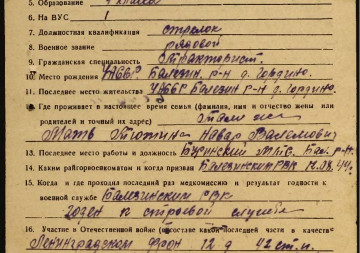 5. Образование 4 класса
6. На ВУС 1
7. Должностная квалификация стрелок
8. Военное звание рядовой
9. Гражданская специальность тракторист
10. Место рождения УАССР Балезин. р-н д. Гордино.
11. Последнее место жительства УАССР Балезин р-н д. Гордино.
12. Где проживает в настоящее время семья (фамилия, имя и отчество жены или
родителей и точный их адрес) Там же
Мать
13. Последнее место работы и должность МТС, Бал. р-н.
14. Каким райгорвоенкоматом и когда призван Балезинским РВК
15. Когда и где проходил последний раз медкомиссию и результат годности к
военной службе Балезинским РВК
годен к строевой службе
16. Участие в Отечественной войне (в составе какой последней части в качестве
Ленинградском фрон. 12 д 42 сп.